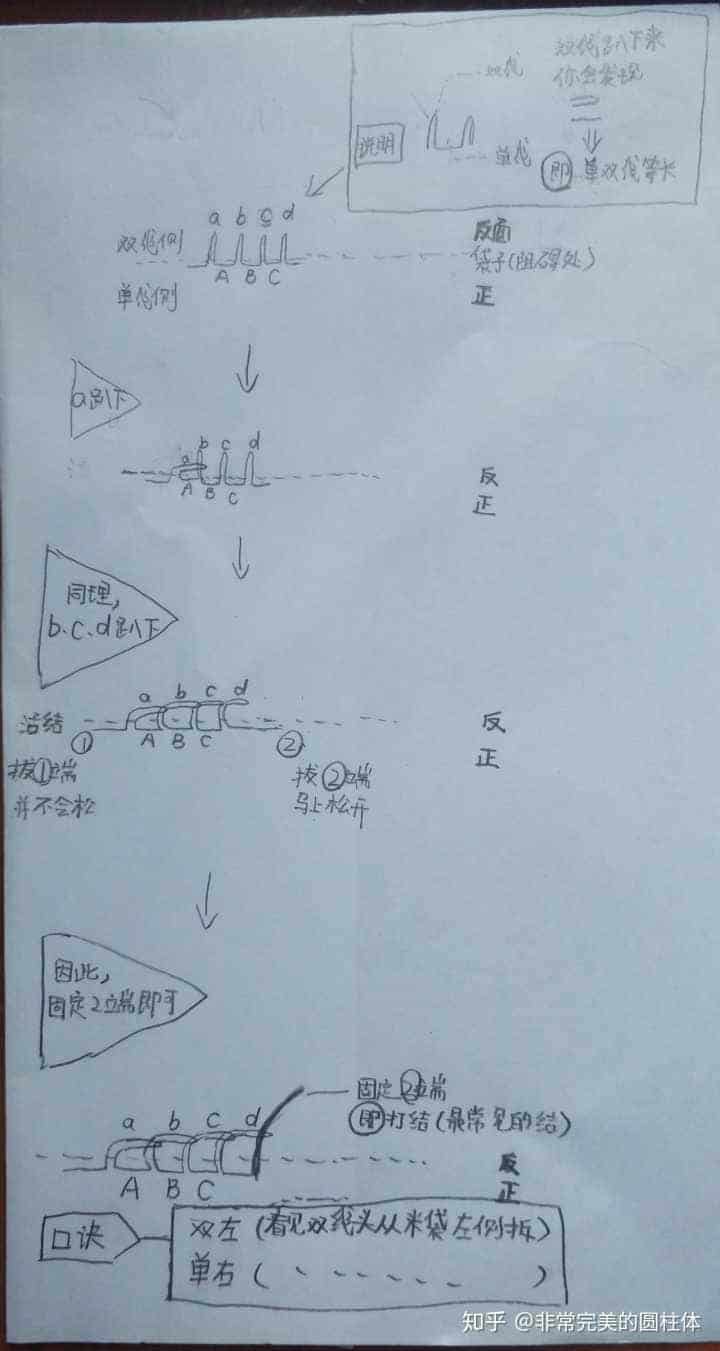 双线趴下来
你会发现
双线
说明
单线
即 单双线等长
a b c d
双线侧
反面
袋子(阻碍处)
A B C
单线侧
正
a趴下
b c d
a
A B C
反
正
同理,
b.c.d趴下
a b c d
活结
① A B C ②
反
正
拔①端
并不会松
拔②端
马上松开
因此,
固定2端即可
固定②端
即打结(最常见的结)
a b c d
A B C
反
正
口诀
双左(看见双线头从米袋左侧拆)
单右( 、、、、、、 )
知乎 @非常完美的圆柱体